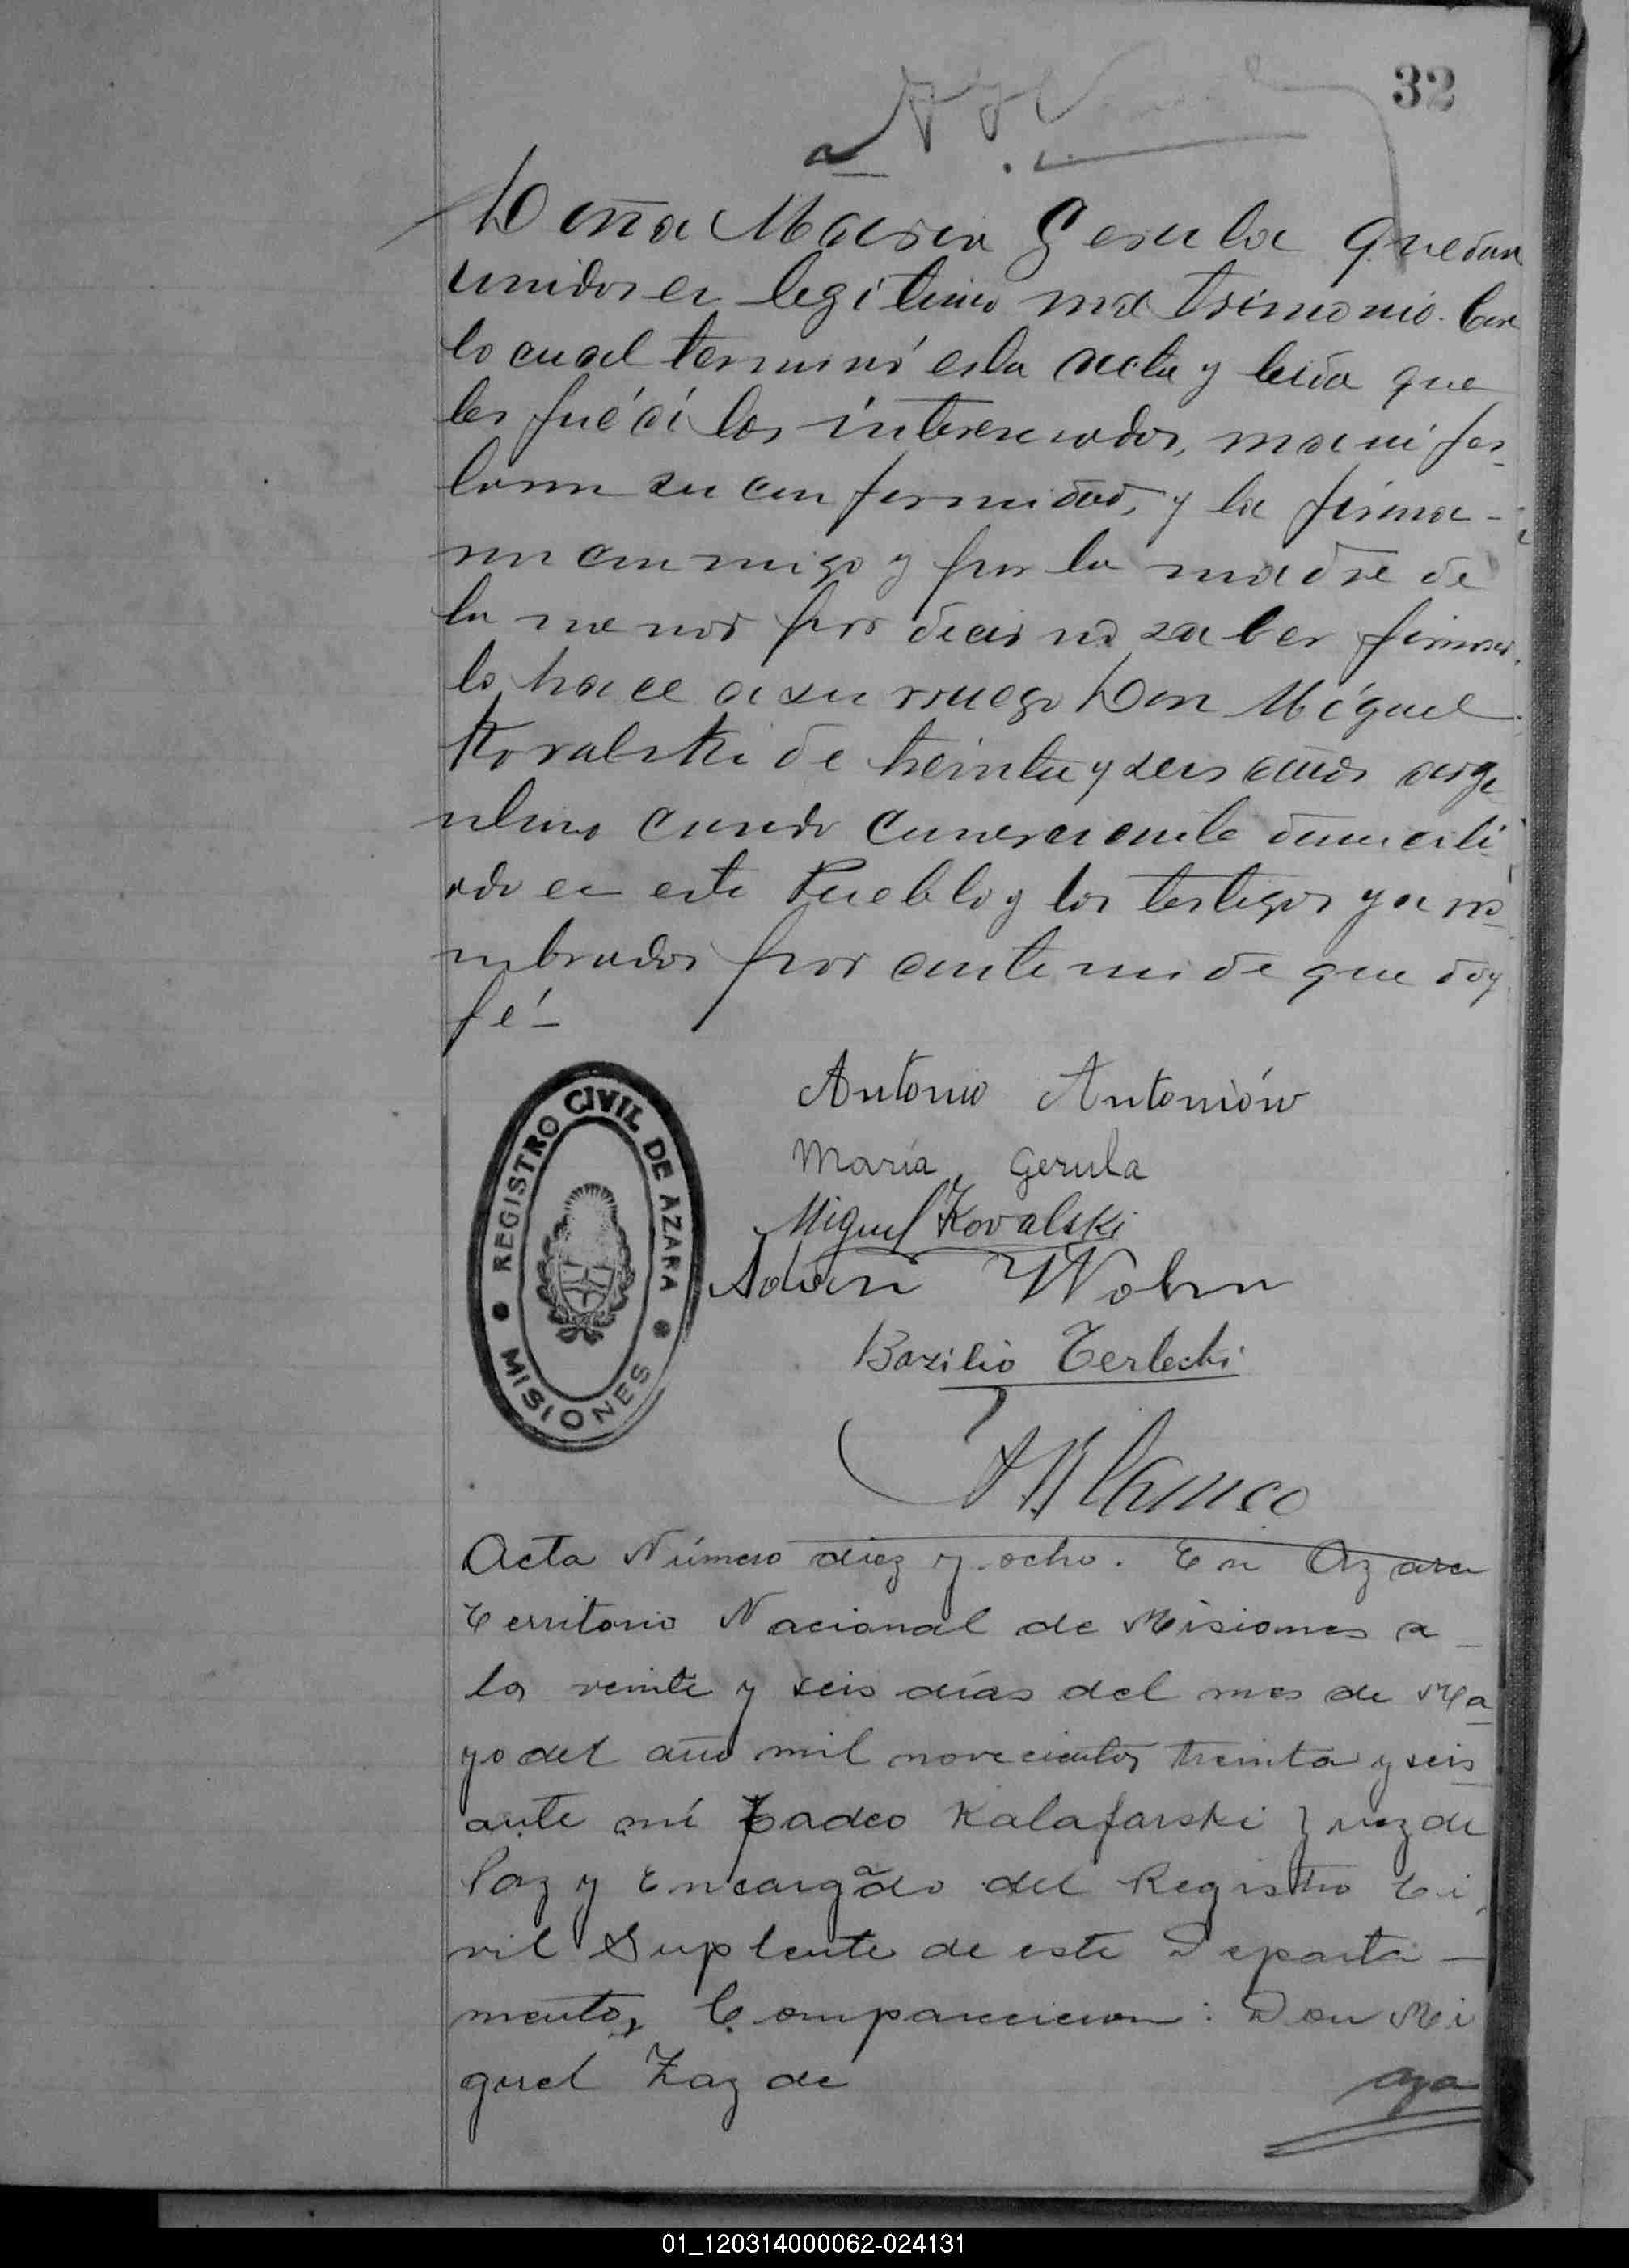 32
Doña Maria Gerula quedan
unidos en legítimo matrimonio. Con
lo cual terminó esta acta y leida que
les fué á los interesados, manifes-
taron su conformidad, y la firma-
ron conmigo y por la madre de
la menor por decir no saber firmar
lo hace a su ruego Don Miguel
Kovalski de treinta y seis años arge
ntino casado comerciante domicili
ado en este Pueblo y los testigos ya no
mbrados por ante mi de que doy
fé-
Antonio Antoniów
María Gerula
Miguel Kovalski
REGISTRO CIVIL DE AZARA
MISIONES
Adan Wolen
Bazilio Terlecki
Blanco
Acta Número diez y ocho. En Azara
Territorio Nacional de Misiones a
los veinte y seis días del mes de Ma
yo del año mil novecientos treinta y seis
ante mí Tadeo Kalafarski Juez de
Paz y Encargado del Registro Ci
vil Suplente de este Departa-
mento, Comparecieron: Don Mi
guel Zaz de
01_120314000062-024131